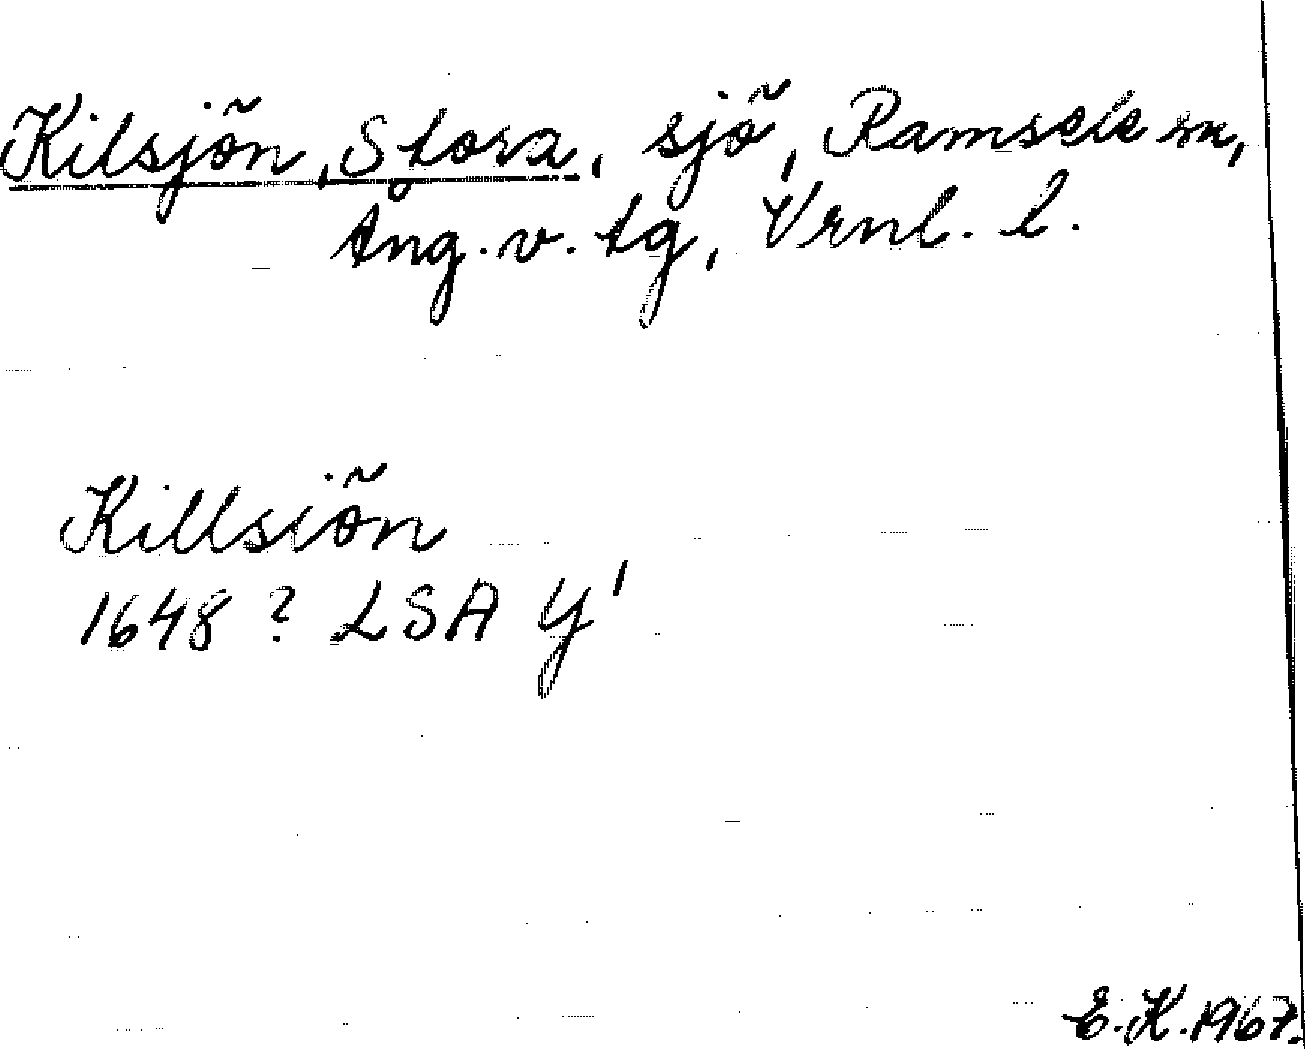 Kilsjön, Stora, sjö, Ramsele sn,
Ång. v. tg, Vrnl. l.
Killsiön
1648? LSA Y1
E.K. 1967.